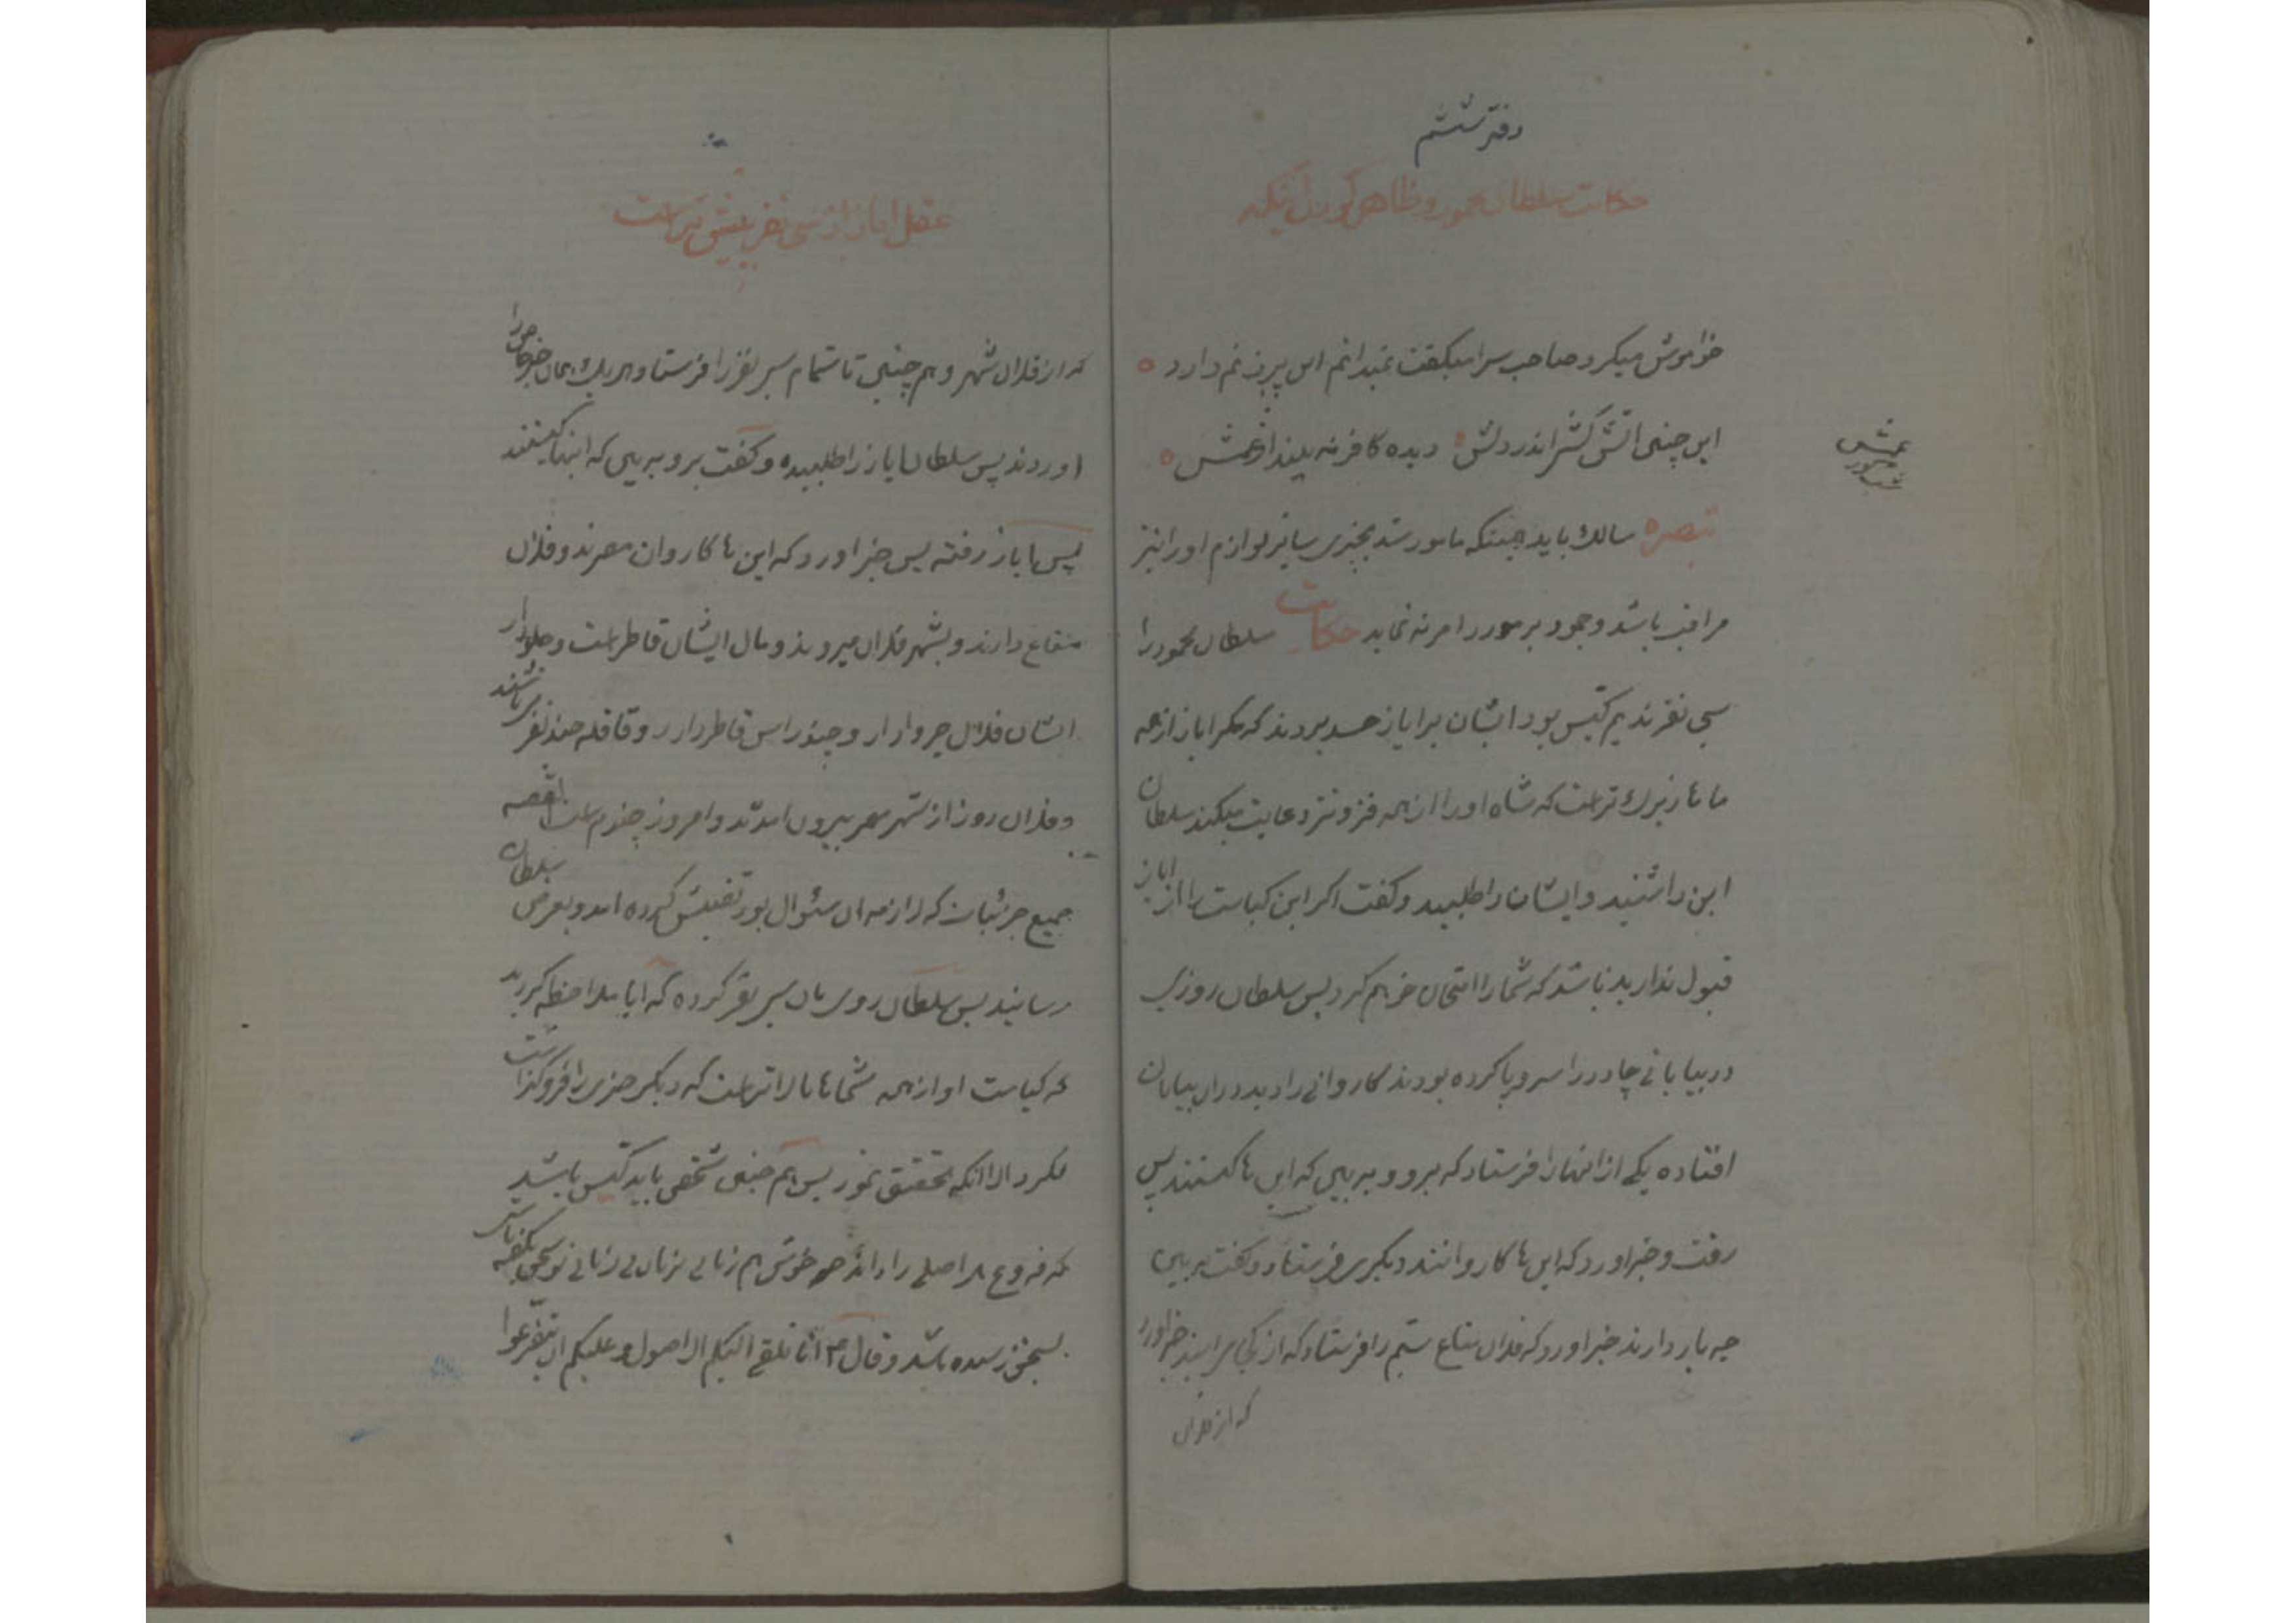 دفتر ششم
حکایت سلطان محمود و ظاهر کردن اینکه
خواموش میکرد صاحب سرا میگفت نمیدانم این پیرزنم دارد
این چنین اتش کشی اندر دلش دیده کافر نه بیند از عمش
عمش
شب کور
تبصره سالك باید چنانکه مامور شد بچیزی سایر لوازم اورا نیز
مراقب باشد و جمود بر مورد امر نه نماید حکایت سلطان محمود را
سی نفر ندیم کیّس بود ایشان بر ایاز حسد بردند که مگر ایاز از همه
ما ها زیرك تر است که شاه او را از همه فزونتر رعایت میکند سلطان
این را شنید و ایشان را طلبید و گفت اگر این کیاست را از ایاز
قبول ندارید باشد که شما را امتحان خواهم کرد پس سلطان روزی
در بیابانی چادر را سر و پا کرده بودند کاروانی را دید در ان بیابان
افتاده یکی از انها را فرستاد که برو و به بین که این ها کیستند پس
رفت و خبر اورد که این ها کاروانند دیگری فرستاد و گفت به بین
چه بار دارند خبر اورد که فلان متاع سیم را فرستاد که از کجا میرایند خبر اورد
که از فلان
عقل ایاز از سی نفر بیشتر است
که از فلان شهر و هم چنین تا تمام سی نفر را فرستاد و هر یك همان خبر خاص را
اوردند پس سلطان ایاز را طلبیده و گفت برو به بین که اینها کیستند
پس ایاز رفته پس خبر اورد که این ها کاروان مصرند و فلان
متاع دارند و بشهر فلان میروند و مال ایشان قاطر است و جلودار
ایشان فلان چروادار و چند راس قاطر دارد و قافله چند نفری باشند
و فلان روز از شهر مصر بیرون امدند و امروز چندم است القصه
جمیع جزئیات که لازمه ان سئوال بود تفتیش کرده امد و بعرض سلطان
رسانید پس سلطان روی بان سی نفر کرده که ایا ملاحظه کردید
که کیاست او از همه شما ها بالاتر است که دیگر چیزی را فروگذاشت
نکرد الا انکه تحقیق نمود پس هم چنین شخصی باید کیّس باشد
که فروع هر اصلی را داند
بسخن رسیده باشد و قال ع انا نلقی الیکم الاصول و علیکم ان تتفرعوا